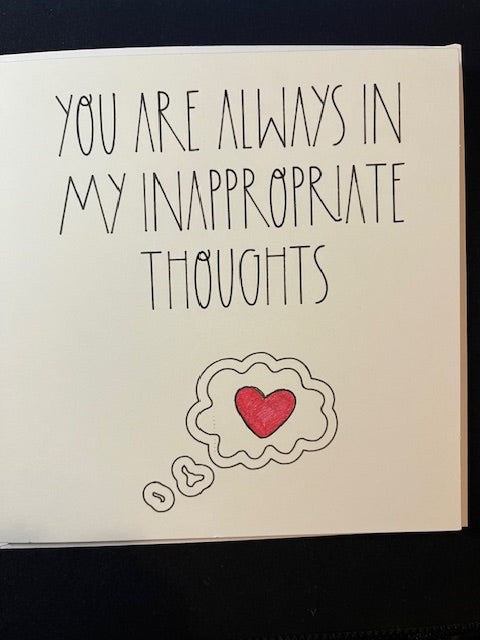 YOU ARE ALWAYS IN
MY INAPPROPRIATE
THOUGHTS